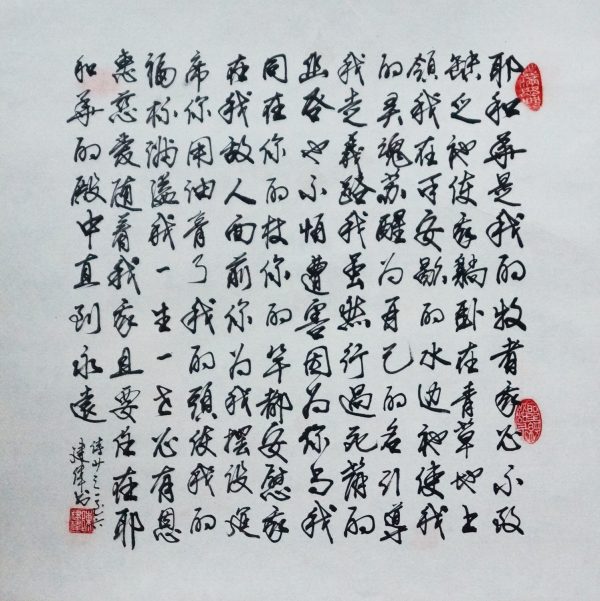 耶和華是我的牧者我必不致
缺乏祂使我躺卧在青草地上
領我在可安歇的水边祂使我
的灵魂苏醒为自己的名引導
我走義路我虽然行過死蔭的
幽谷也不怕遭害因为你与我
同在你的杖你的竿都安慰我
在我敌人面前你为我摆设筵
席你用油膏了我的頭使我的
福杯满溢我一生一世必有恩
惠慈愛随着我我且要住在耶
和華的殿中直到永遠
诗廿三之一至六
建书